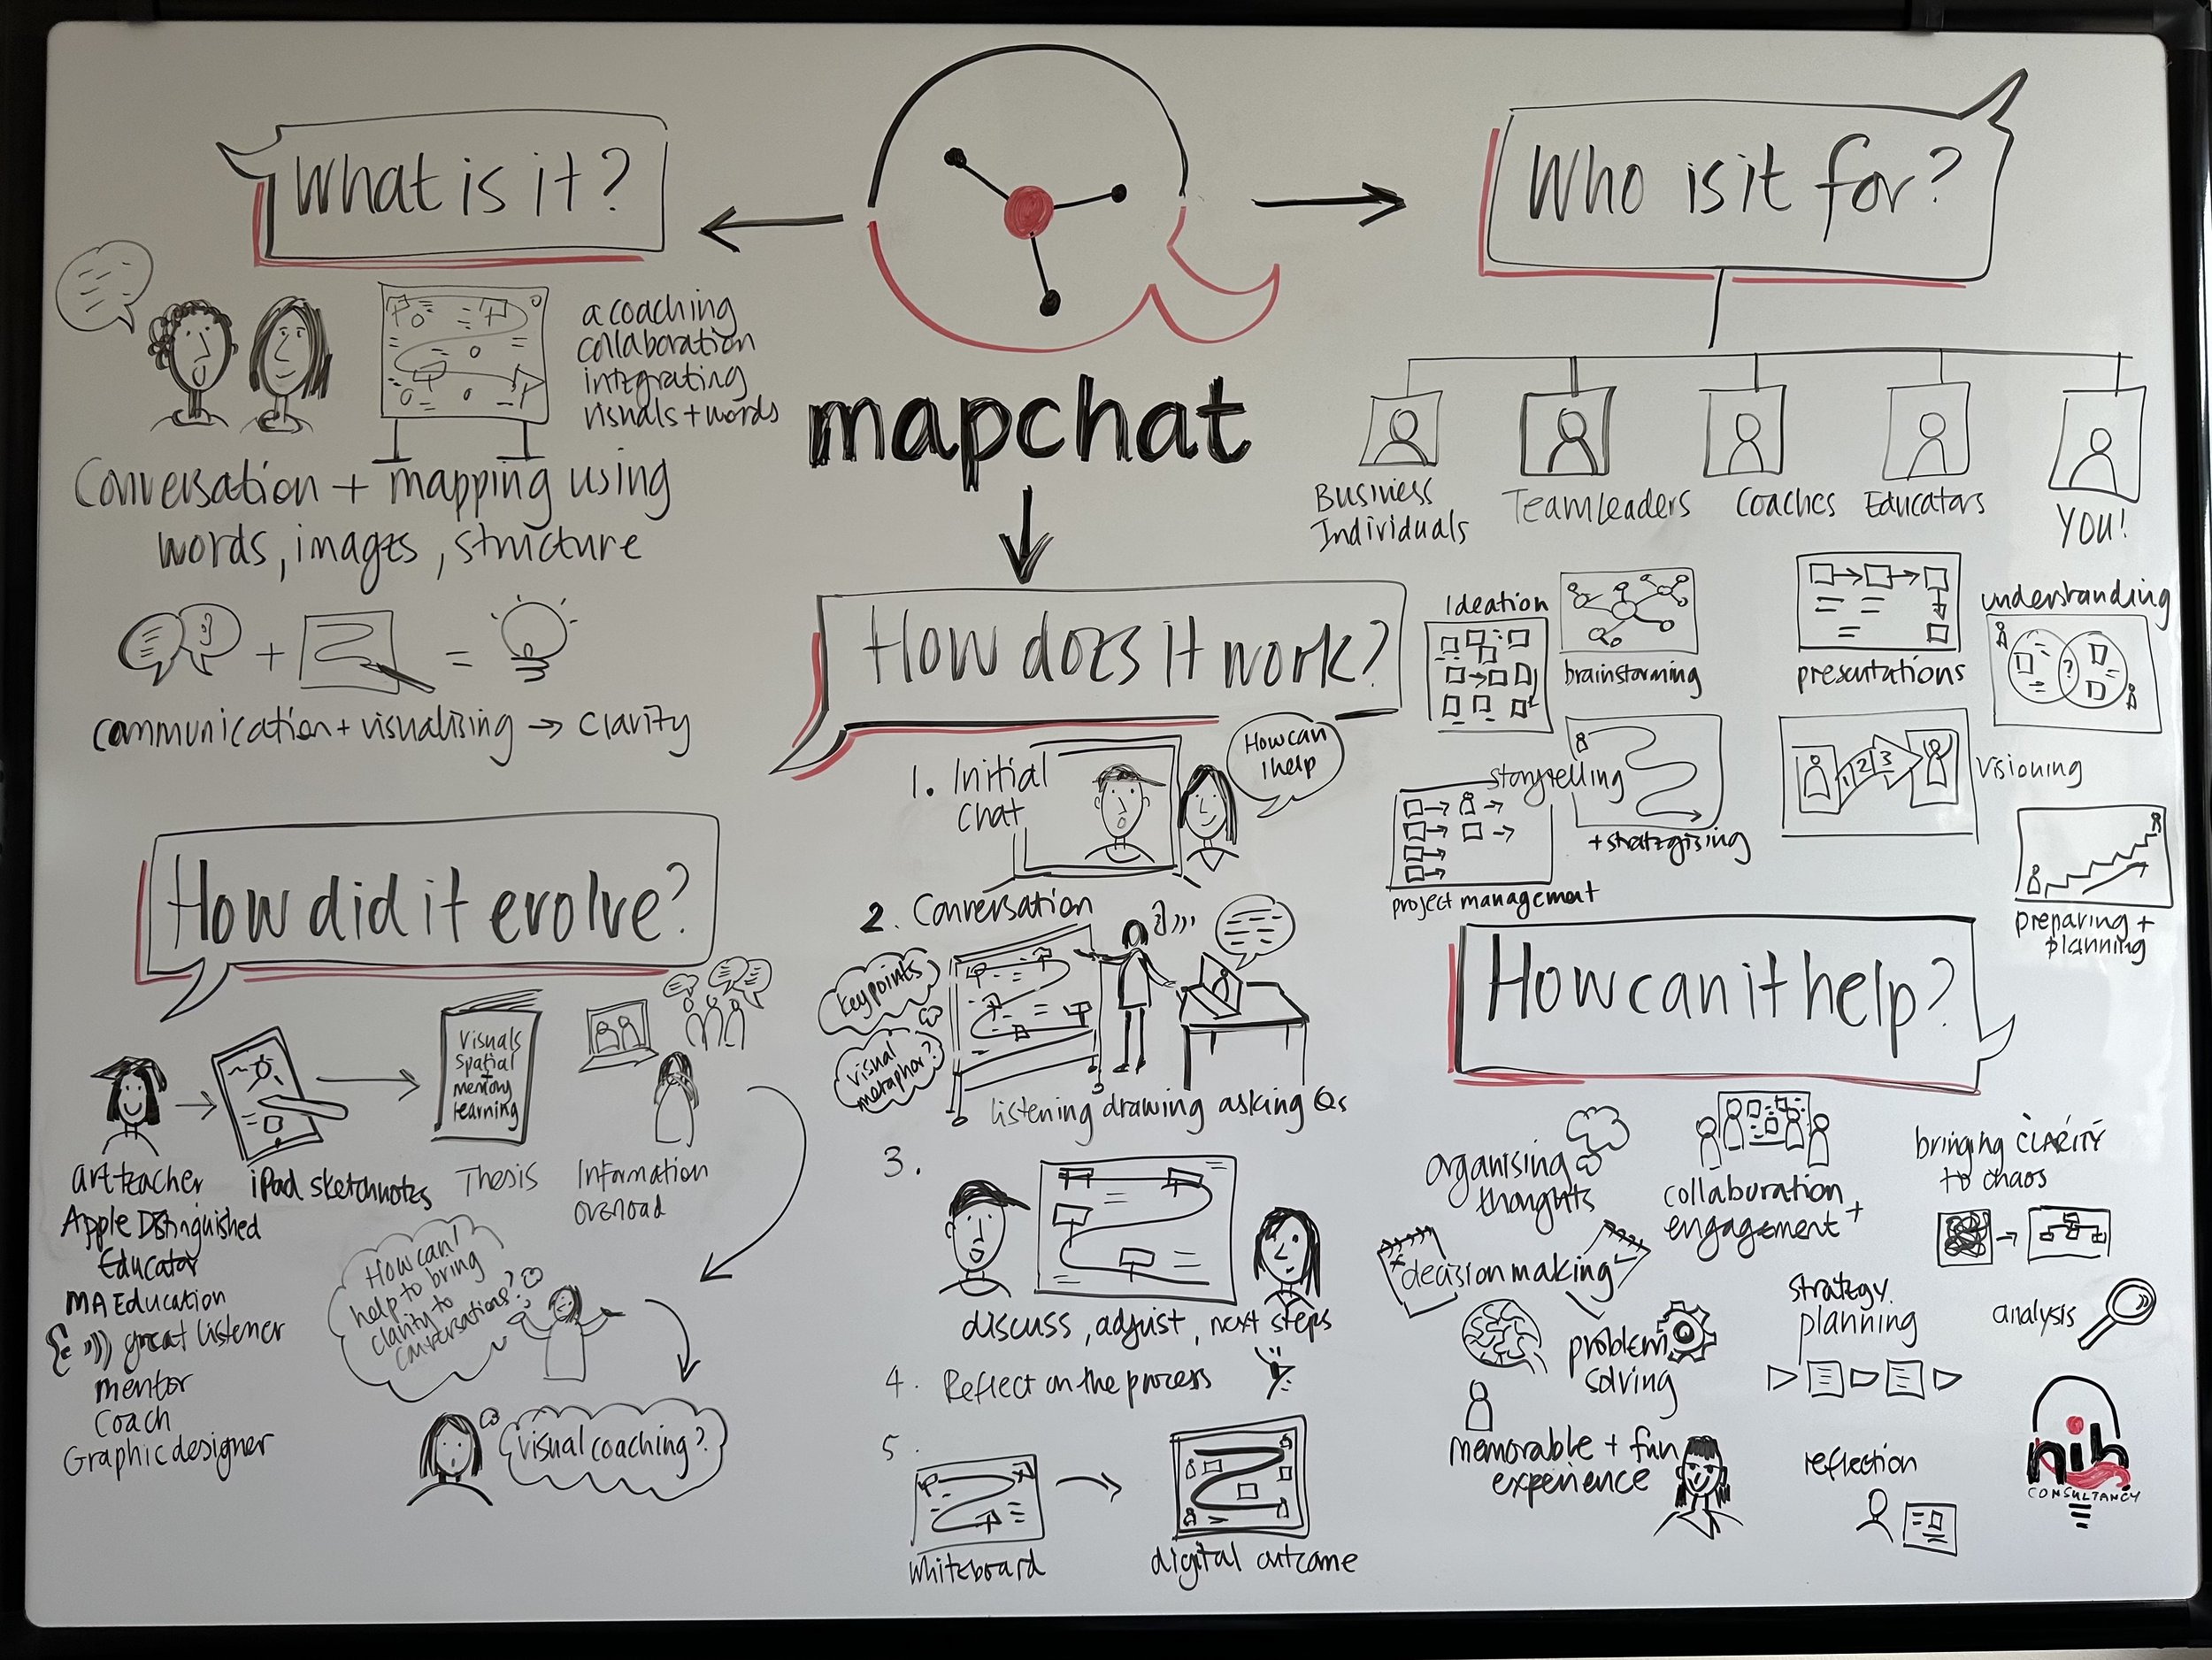 What is it?
a coaching
collaboration
integrating
visuals + words
Conversation + mapping using
words, images, structure
+
=
communication + visualising → clarity
mapchat
Who is it for?
Business
Individuals
Team Leaders
Coaches
Educators
YOU!
Ideation
brainstorming
presentations
understanding
?
storytelling
+ strategising
1 2 3
Visioning
project management
preparing +
planning
How does it work?
1. Initial
chat
How can
I help
2. Conversation
key points
visual
metaphor?
listening drawing asking Qs
3.
discuss, adjust, next steps
4. Reflect on the process
5.
whiteboard
digital outcome
How did it evolve?
art teacher
Apple Distinguished
Educator
MA Education
great listener
mentor
Coach
Graphic designer
iPad sketchnotes
Visuals
Spatial
memory
learning
Thesis
Information
overoad
How can I
help to bring
clarity to
conversations?
visual coaching?
How can it help?
organising
thoughts
collaboration +
engagement
bringing CLARITY
to chaos
decision making
problem
solving
strategy
planning
analysis
memorable + fun
experience
reflection
nih
CONSULTANCY